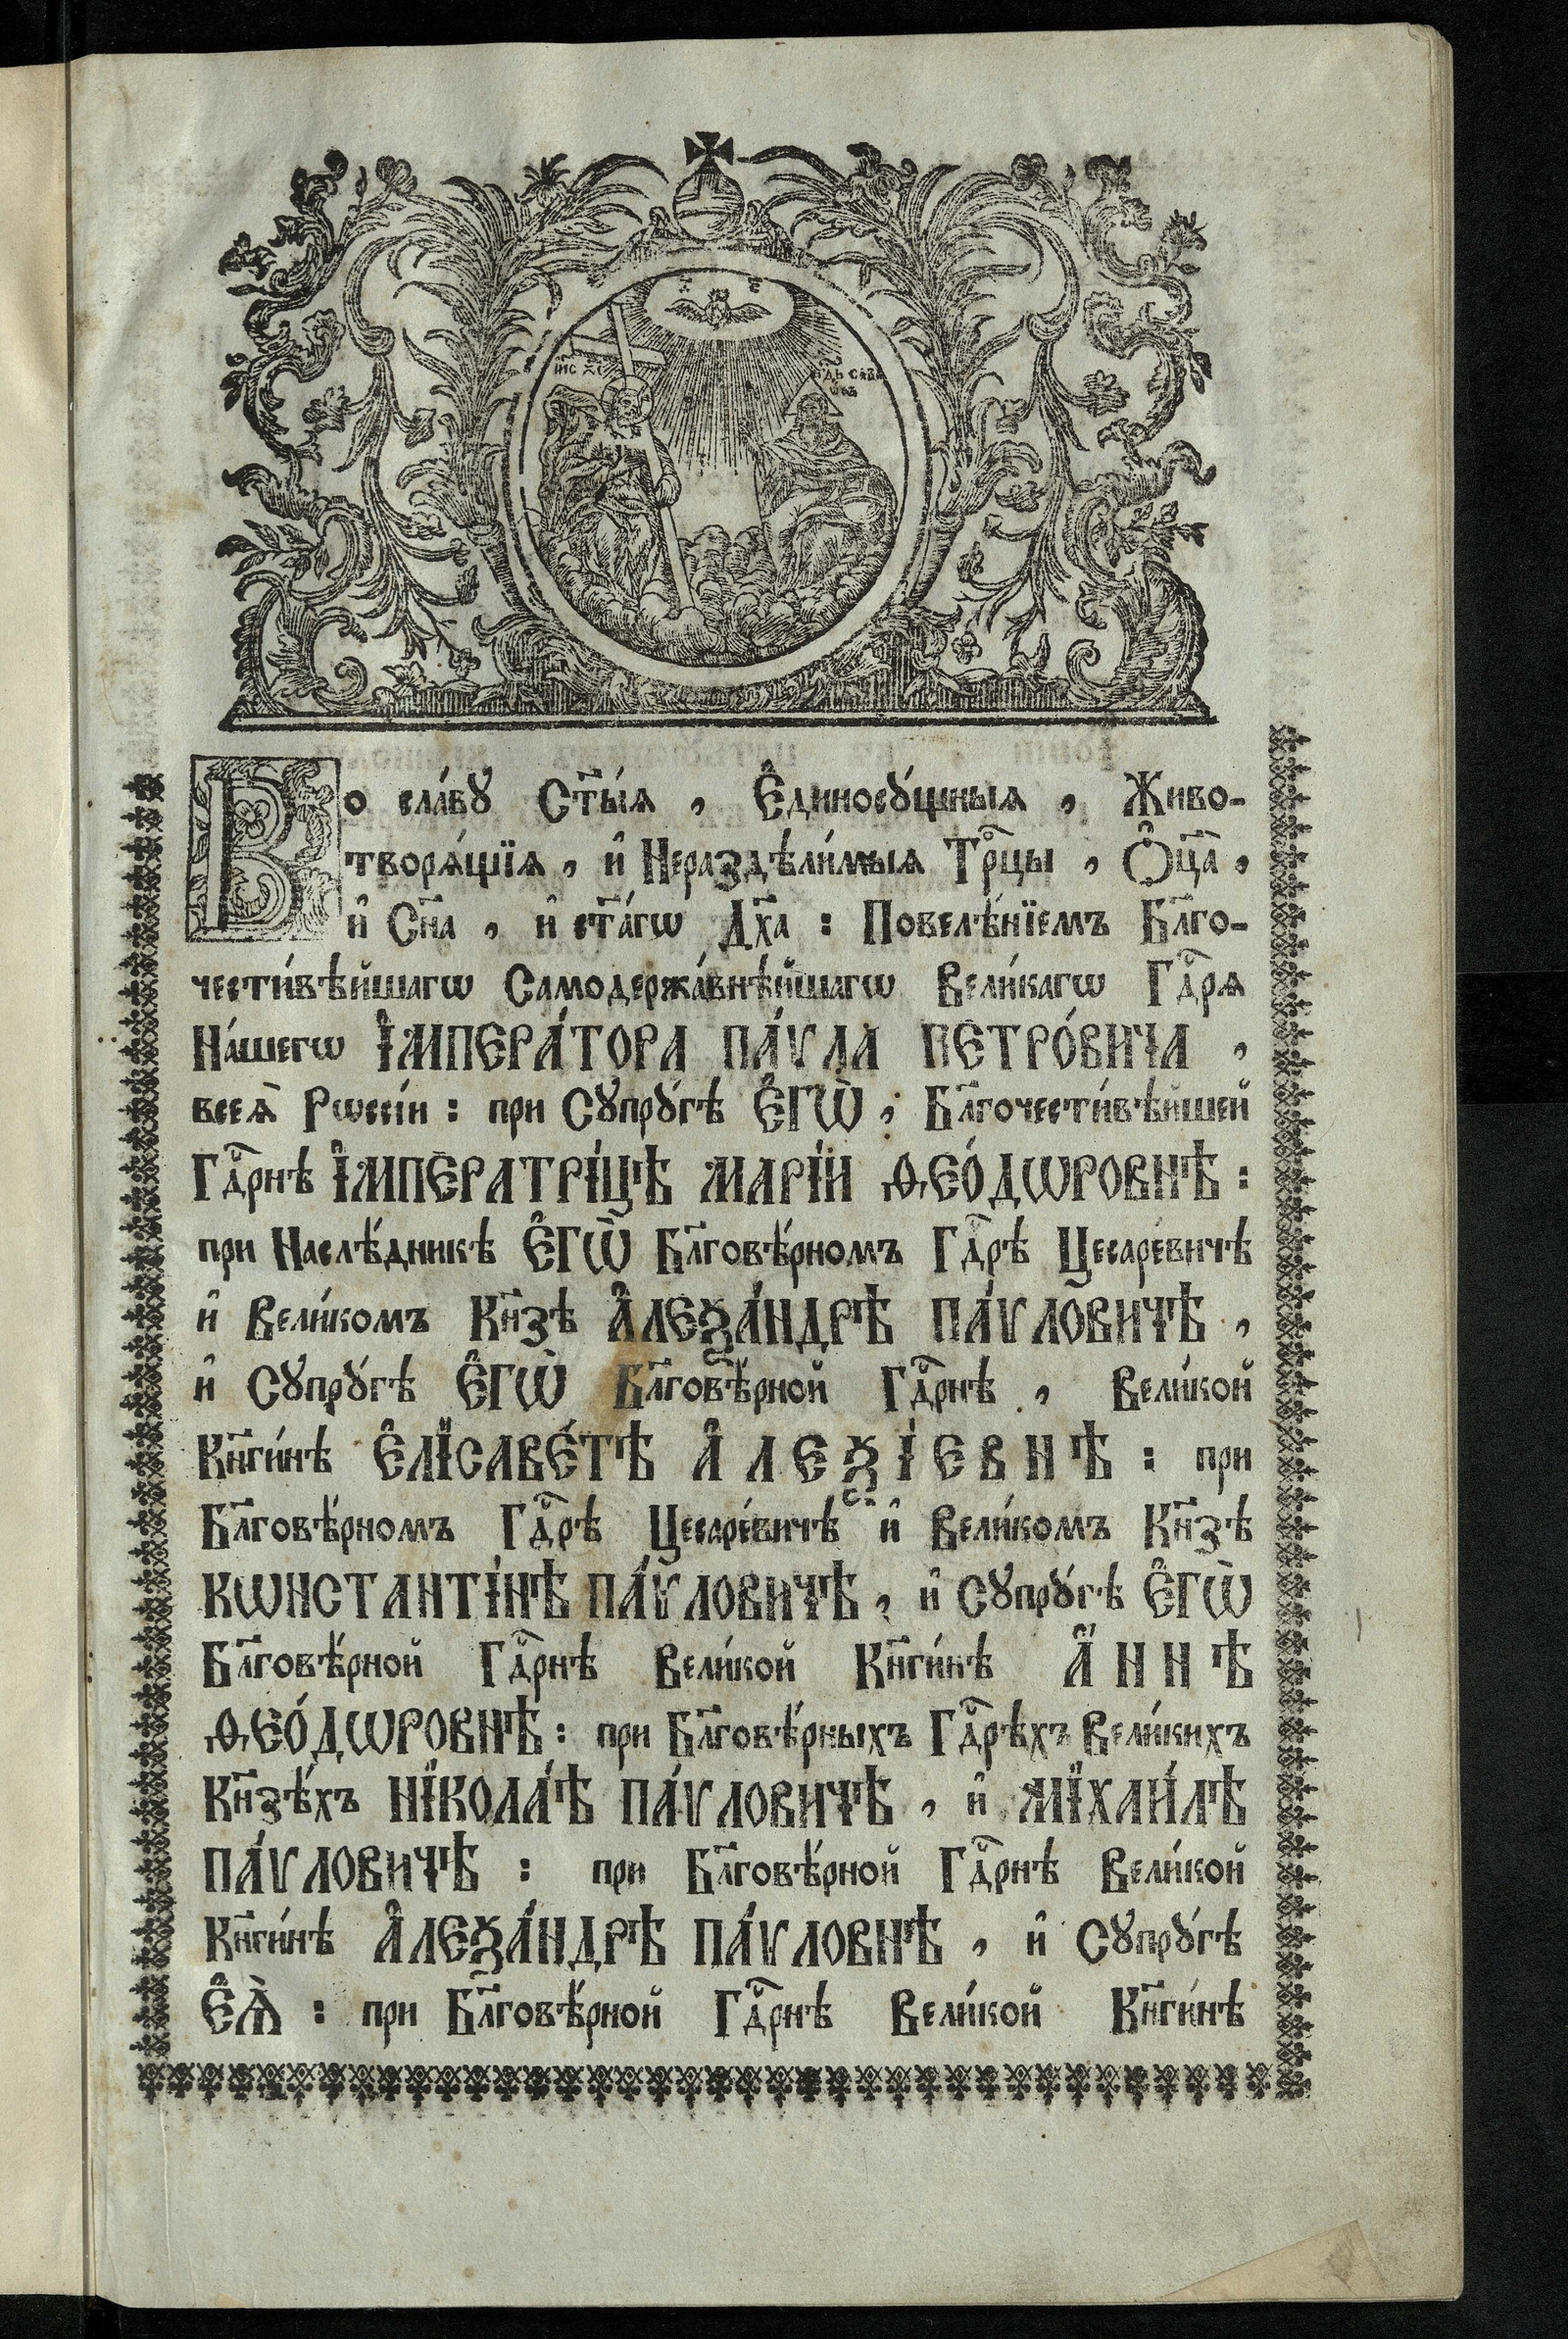 І҆И҃С Х҃С
Гдⷭ҇ь Сава
ѡѳъ
Во сла́вꙋ Ст҃ы́ѧ , Є҆диносꙋ́щныѧ , Живо-
творѧ́щїѧ , и҆ Нераздѣли́мыѧ Трⷪ҇цы , Ѻ҆ц҃а̀ ,
и҆ Сн҃а , и҆ ст҃а́гѡ Дх҃а : Повелѣ́нїемъ Бл҃го-
чести́вѣйшагѡ Самодержа́внѣйшагѡ Вели́кагѡ Гдⷭ҇рѧ
На́шегѡ І҆МПЕРА́ТОРА ПА́ѴЛА ПЕТРО́ВИЧА ,
всеѧ̀ Рѡссі́и : при Сꙋпрꙋ́гѣ Є҆ГѠ̀ , Бл҃гочести́вѣйшей
Гдⷭ҇рнѣ І҆МПЕРАТРІ́ЦѢ МАРІ́И Ѳ҆ЕО́ДѠРОВНѢ :
при Наслѣ́дникѣ Є҆ГѠ̀ Бл҃говѣ́рномъ Гдⷭ҇рѣ Цесаре́вичѣ
и҆ Вели́комъ Кн҃зѣ А҆ЛЕѮА́НДРѢ ПА́ѴЛОВИЧѢ ,
и҆ Сꙋпрꙋ́гѣ Є҆ГѠ̀ Бл҃говѣ́рной Гдⷭ҇рнѣ , Вели́кой
Кн҃ги́нѣ Є҆ЛІСАВЕ́ТѢ А҆ЛЕѮІ́ЕВНѢ : при
Бл҃говѣ́рномъ Гдⷭ҇рѣ Цесаре́вичѣ и҆ Вели́комъ Кн҃зѣ
КѠНСТАНТІ́НѢ ПА́ѴЛОВИЧѢ , и҆ Сꙋпрꙋ́гѣ Є҆ГѠ̀
Бл҃говѣ́рной Гдⷭ҇рнѣ Вели́кой Кн҃ги́нѣ А҆́ННѢ
Ѳ҆ЕО́ДѠРОВНѢ : при Бл҃говѣ́рныхъ Гдⷭ҇рѣхъ Вели́кихъ
Кн҃зѣ́хъ НІКОЛА́Ѣ ПА́ѴЛОВИЧѢ , и҆ МІХАИ́ЛѢ
ПА́ѴЛОВИЧѢ : при Бл҃говѣ́рной Гдⷭ҇рнѣ Вели́кой
Кн҃ги́нѣ А҆ЛЕѮА́НДРѢ ПА́ѴЛОВНѢ , и҆ Сꙋпрꙋ́гѣ
Є҆Ѧ̀ : при Бл҃говѣ́рной Гдⷭ҇рнѣ Вели́кой Кн҃ги́нѣ